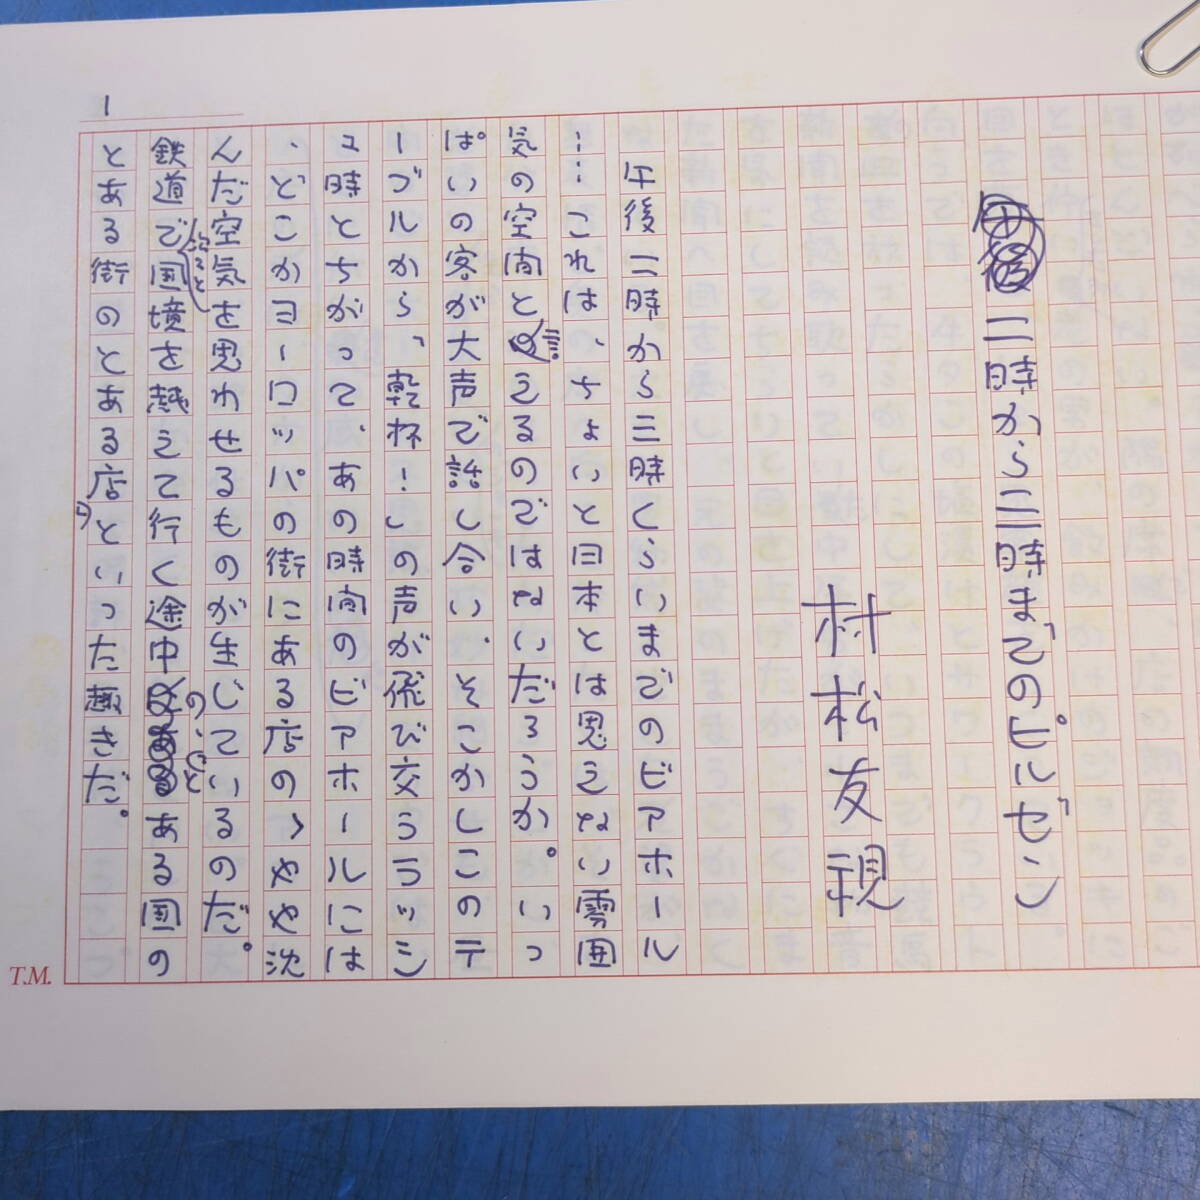 二時から三時までのピルゼン
村松友視
午後二時から三時くらいまでのビアホール
……これは、ちょいと日本とは思えない雰囲
気の空間と言えるのではないだろうか。いっ
ぱいの客が大声で話し合い、そこかしこのテ
ーブルから、「乾杯！」の声が飛び交うラッシ
ュ時とちがって、あの時間のビアホールには
、どこかヨーロッパの街にある店の、やや沈
んだ空気を思わせるものが生じているのだ。
鉄道で国境を越えて行く途中の、ふとある国の
とある街のとある店といった趣きだ。
1
T.M.